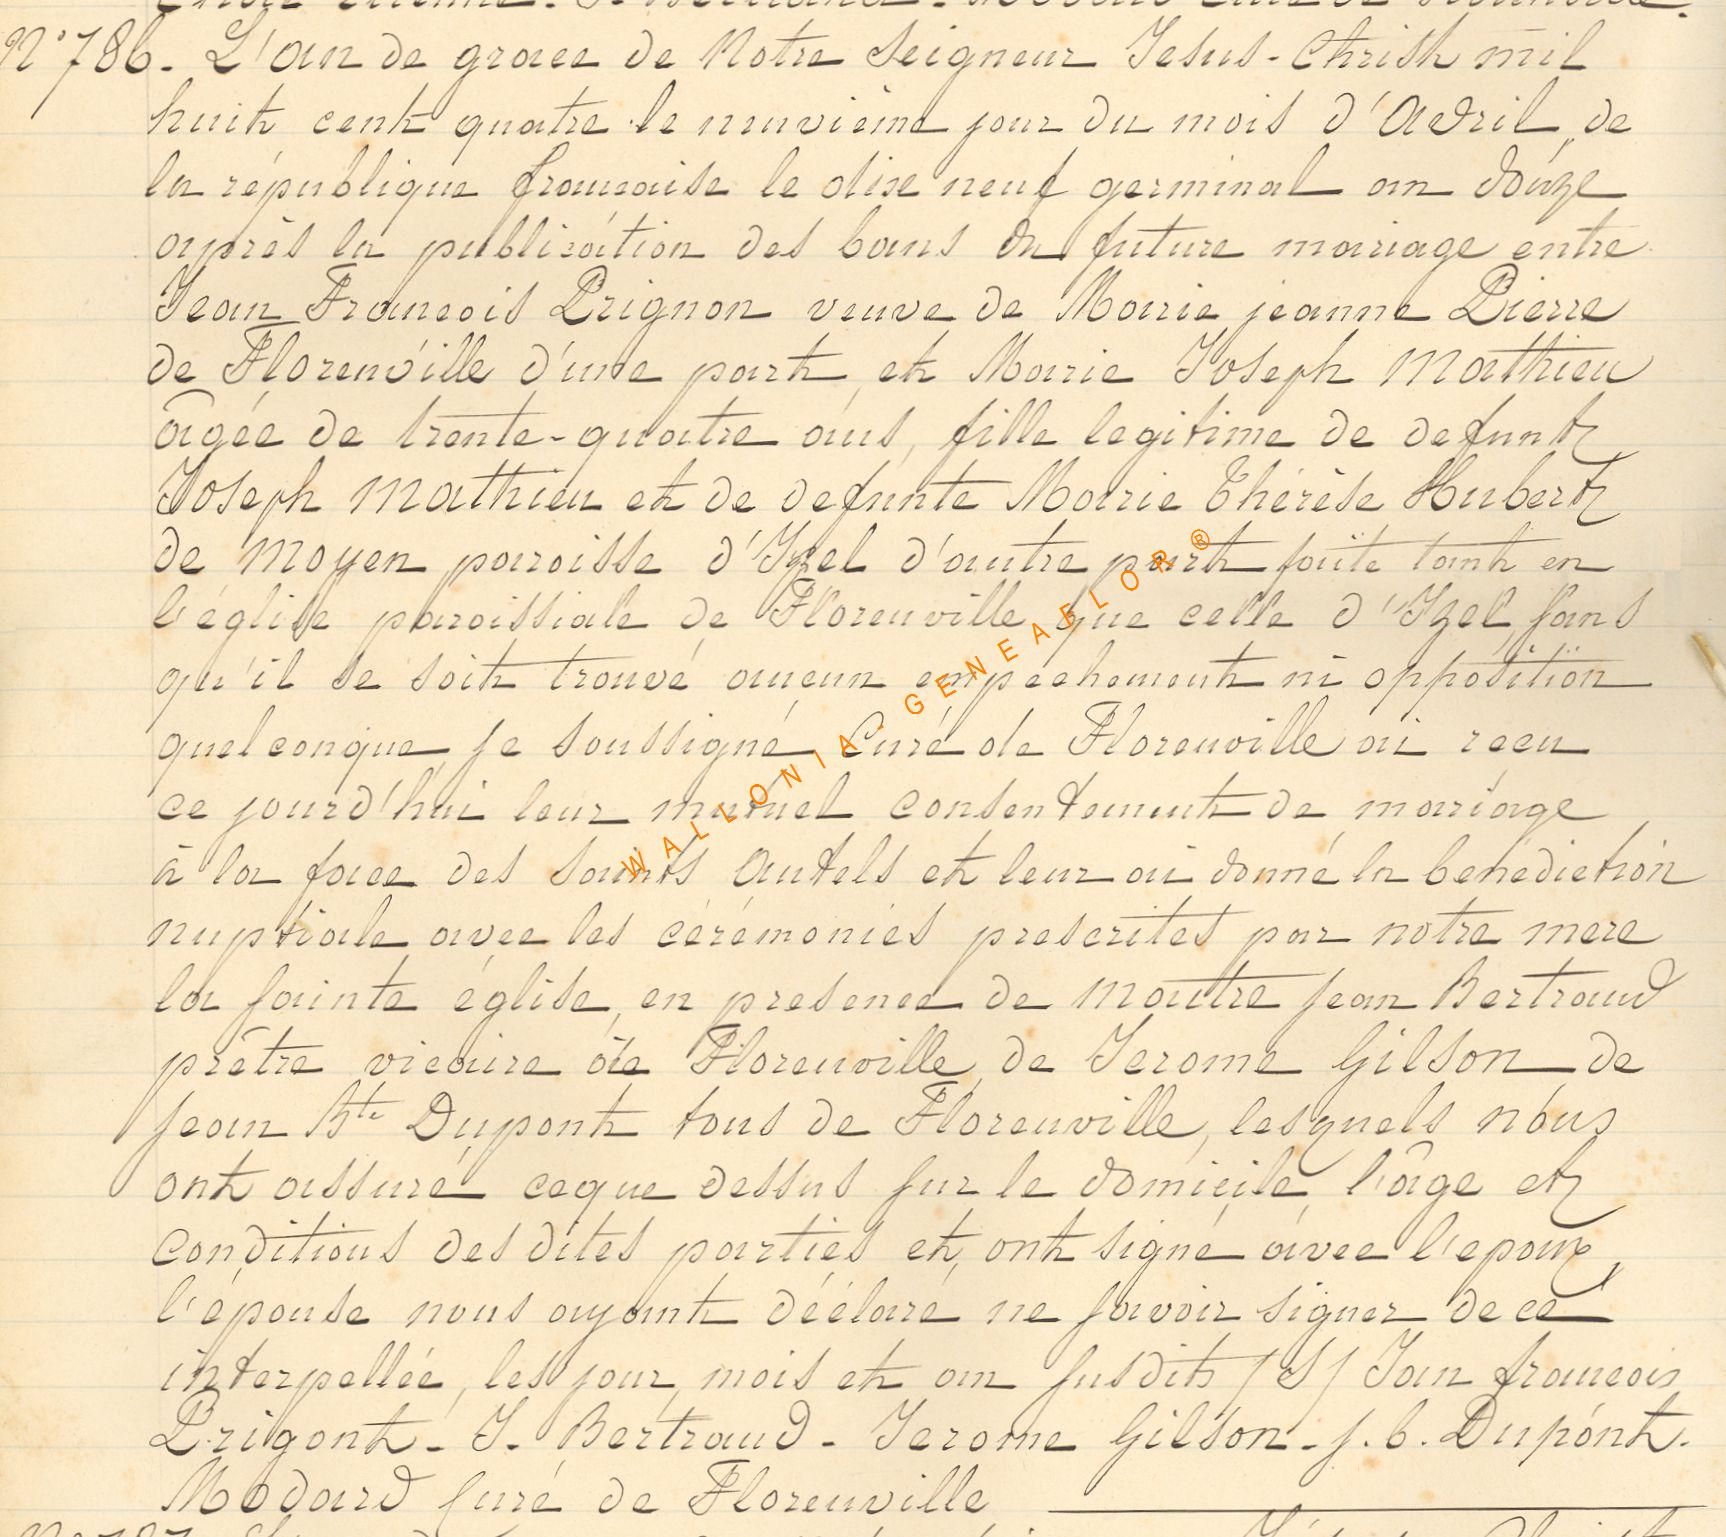 N° 786. L'an de grace de Notre Seigneur Jesus-Christ mil
huit cent quatre le neuvième jour du mois d'Avril, de
la république francaise le dixe neuf germinal an douze
après la publication des bans du future mariage entre
Jean Francois Prignon veuve de Marie jeanne Pierre
de Florenville d'une part, et Marie Joseph Mathieu
âgée de trente-quatre ans, fille legitime de defunt
Joseph Mathieu et de defunte Marie Thérèse Hubert
de Moyen paroisse d'Izel d'autre part faite tant en
l'église paroissiale de Florenville que celle d'Izel, sans
qu'il se soit trouvé aucun empechement ni opposition
quelconque, je soussigné Curé de Florenville ai recu
ce jourd'hui leur mutuel consentement de mariage
à la face des saints Autels et leur ai donné la bénédiction
nuptiale avec les cérémonies prescrites par notre mere
la sainte église, en presence de Maitre jean Bertrand
prêtre vicaire de Florenville, de Jerome Gilson de
jean Bte Dupont tous de Florenville, lesquels nous
ont assuré ceque dessus sur le domicile, l'âge et
conditions des dites parties et, ont signé avec l'epoux,
l'épouse nous ayant déclaré ne savoir signer de ce
interpellée, les jour, mois et an susdits /S/ Jan francois
Prigont - J. Bertrand - Jerome Gilson - j. b. Dupont.
Modard Curé de Florenville
WALLONIA-GENEAFLOR®